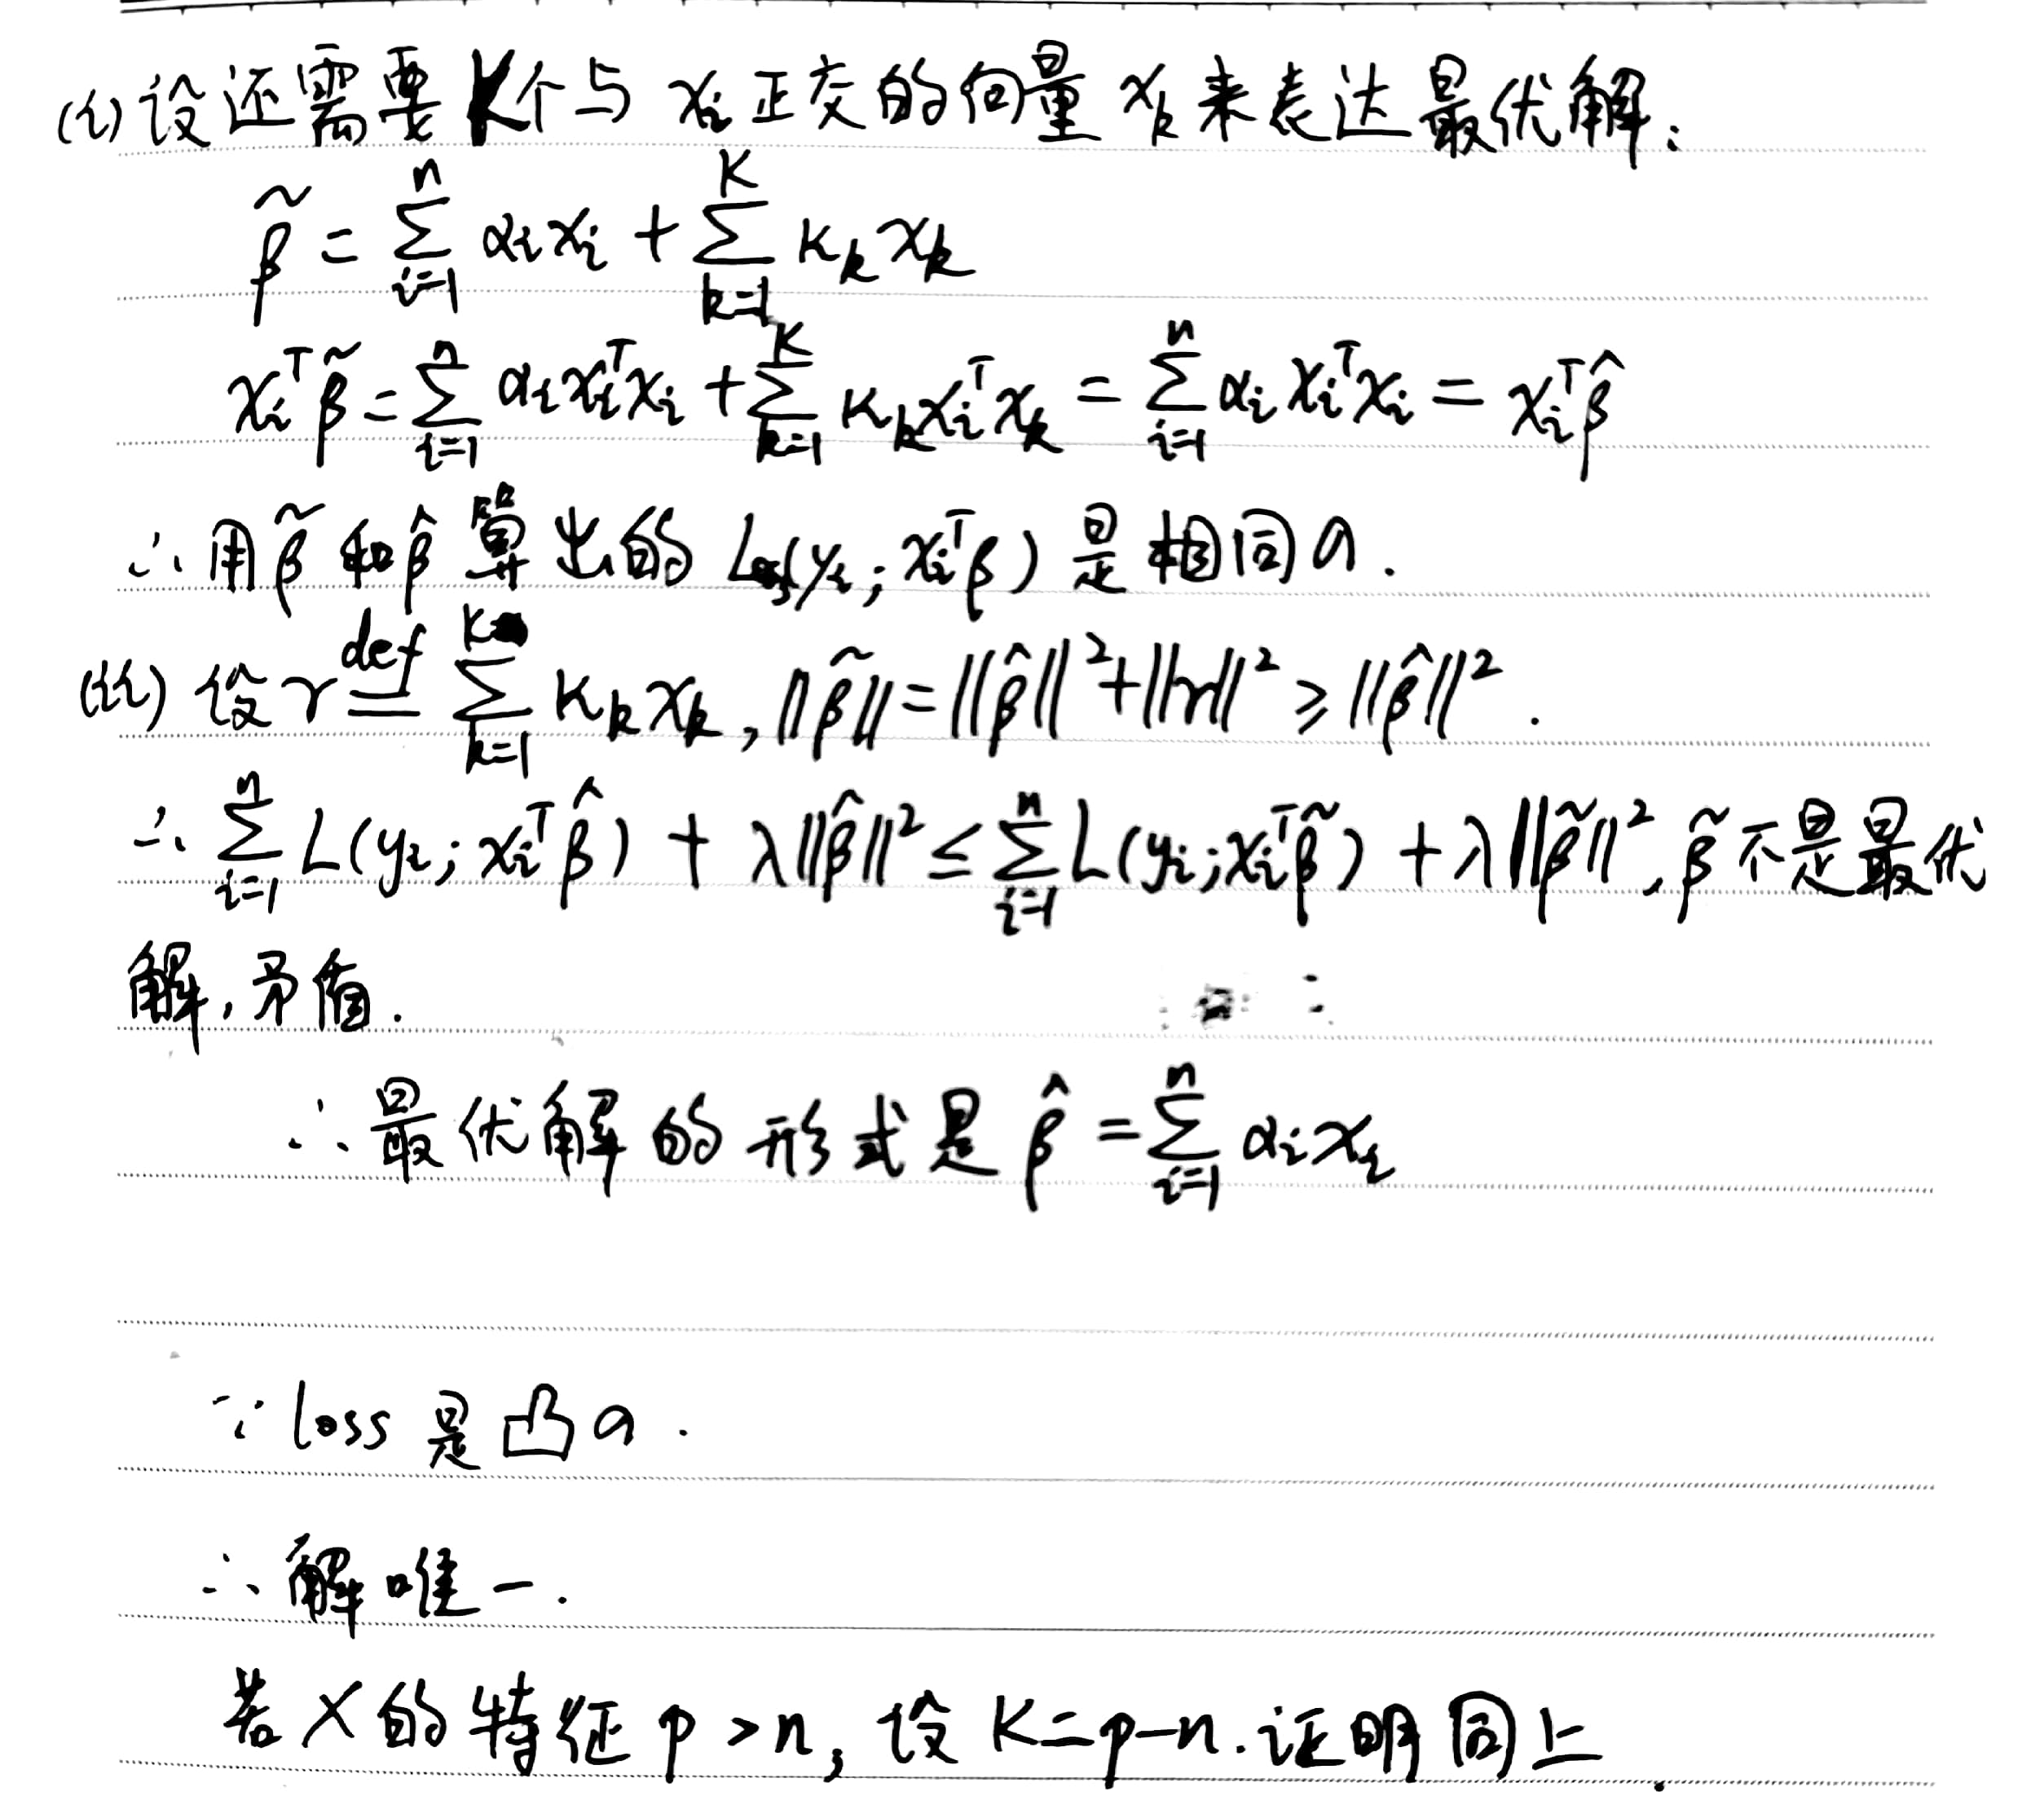 (i) 设还需要K个与 xᵢ 正交的向量 xₖ 来表达最优解:
β̃ = Σᵢ₌₁ⁿ αᵢxᵢ + Σₖ₌₁ᴷ κₖxₖ
xᵢᵀβ̃ = Σᵢ₌₁ⁿ αᵢxᵢᵀxᵢ + Σₖ₌₁ᴷ κₖxᵢᵀxₖ = Σᵢ₌₁ⁿ αᵢxᵢᵀxᵢ = xᵢᵀβ̂
∴ 用β̃ 和β̂ 算出的 L(yᵢ; xᵢᵀβ) 是相同の.
(ii) 设 r ≝ Σₖ₌₁ᴷ κₖxₖ, ||β̃|| = ||β̂||² + ||r||² ≥ ||β̂||².
∴ Σᵢ₌₁ⁿ L(yᵢ; xᵢᵀβ̂) + λ||β̂||² ≤ Σᵢ₌₁ⁿ L(yᵢ; xᵢᵀβ̃) + λ||β̃||², β̃ 不是最优
解,矛盾.
∴ 最优解的形式是 β̂ = Σᵢ₌₁ⁿ αᵢxᵢ
∵ loss 是凸の.
∴ 解唯一.
若 X 的特征 p > n, 设 K = p-n. 证明同上.